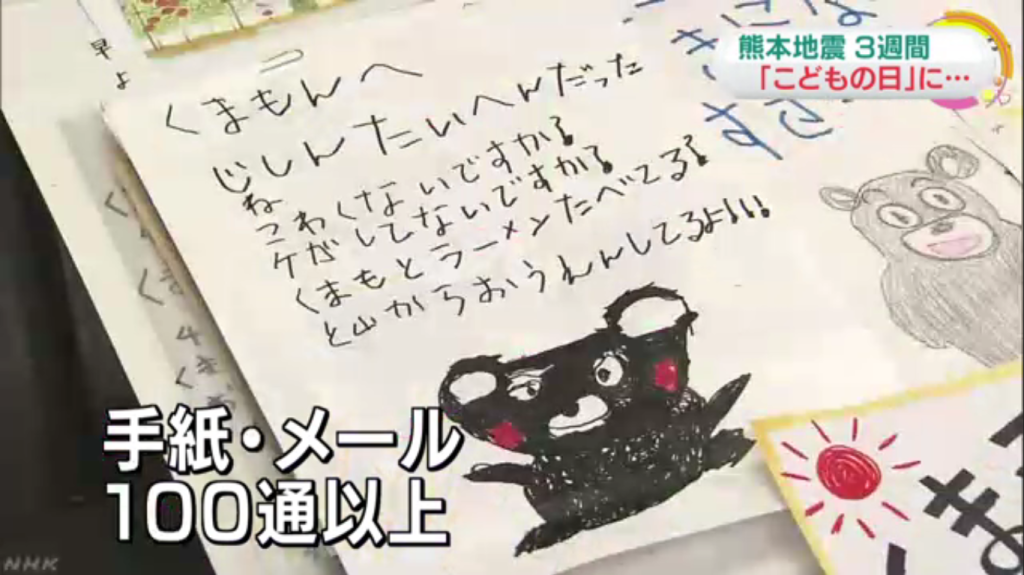 熊本地震 3週間
「こどもの日」に…
くまもんへ
じしんたいへんだった
ね
こわくないですか？
ケガしてないですか？
くまもとラーメンたべてる？
と山からおうえんしてるよ!!!
早
よ
すき
手紙・メール
100通以上
NHK